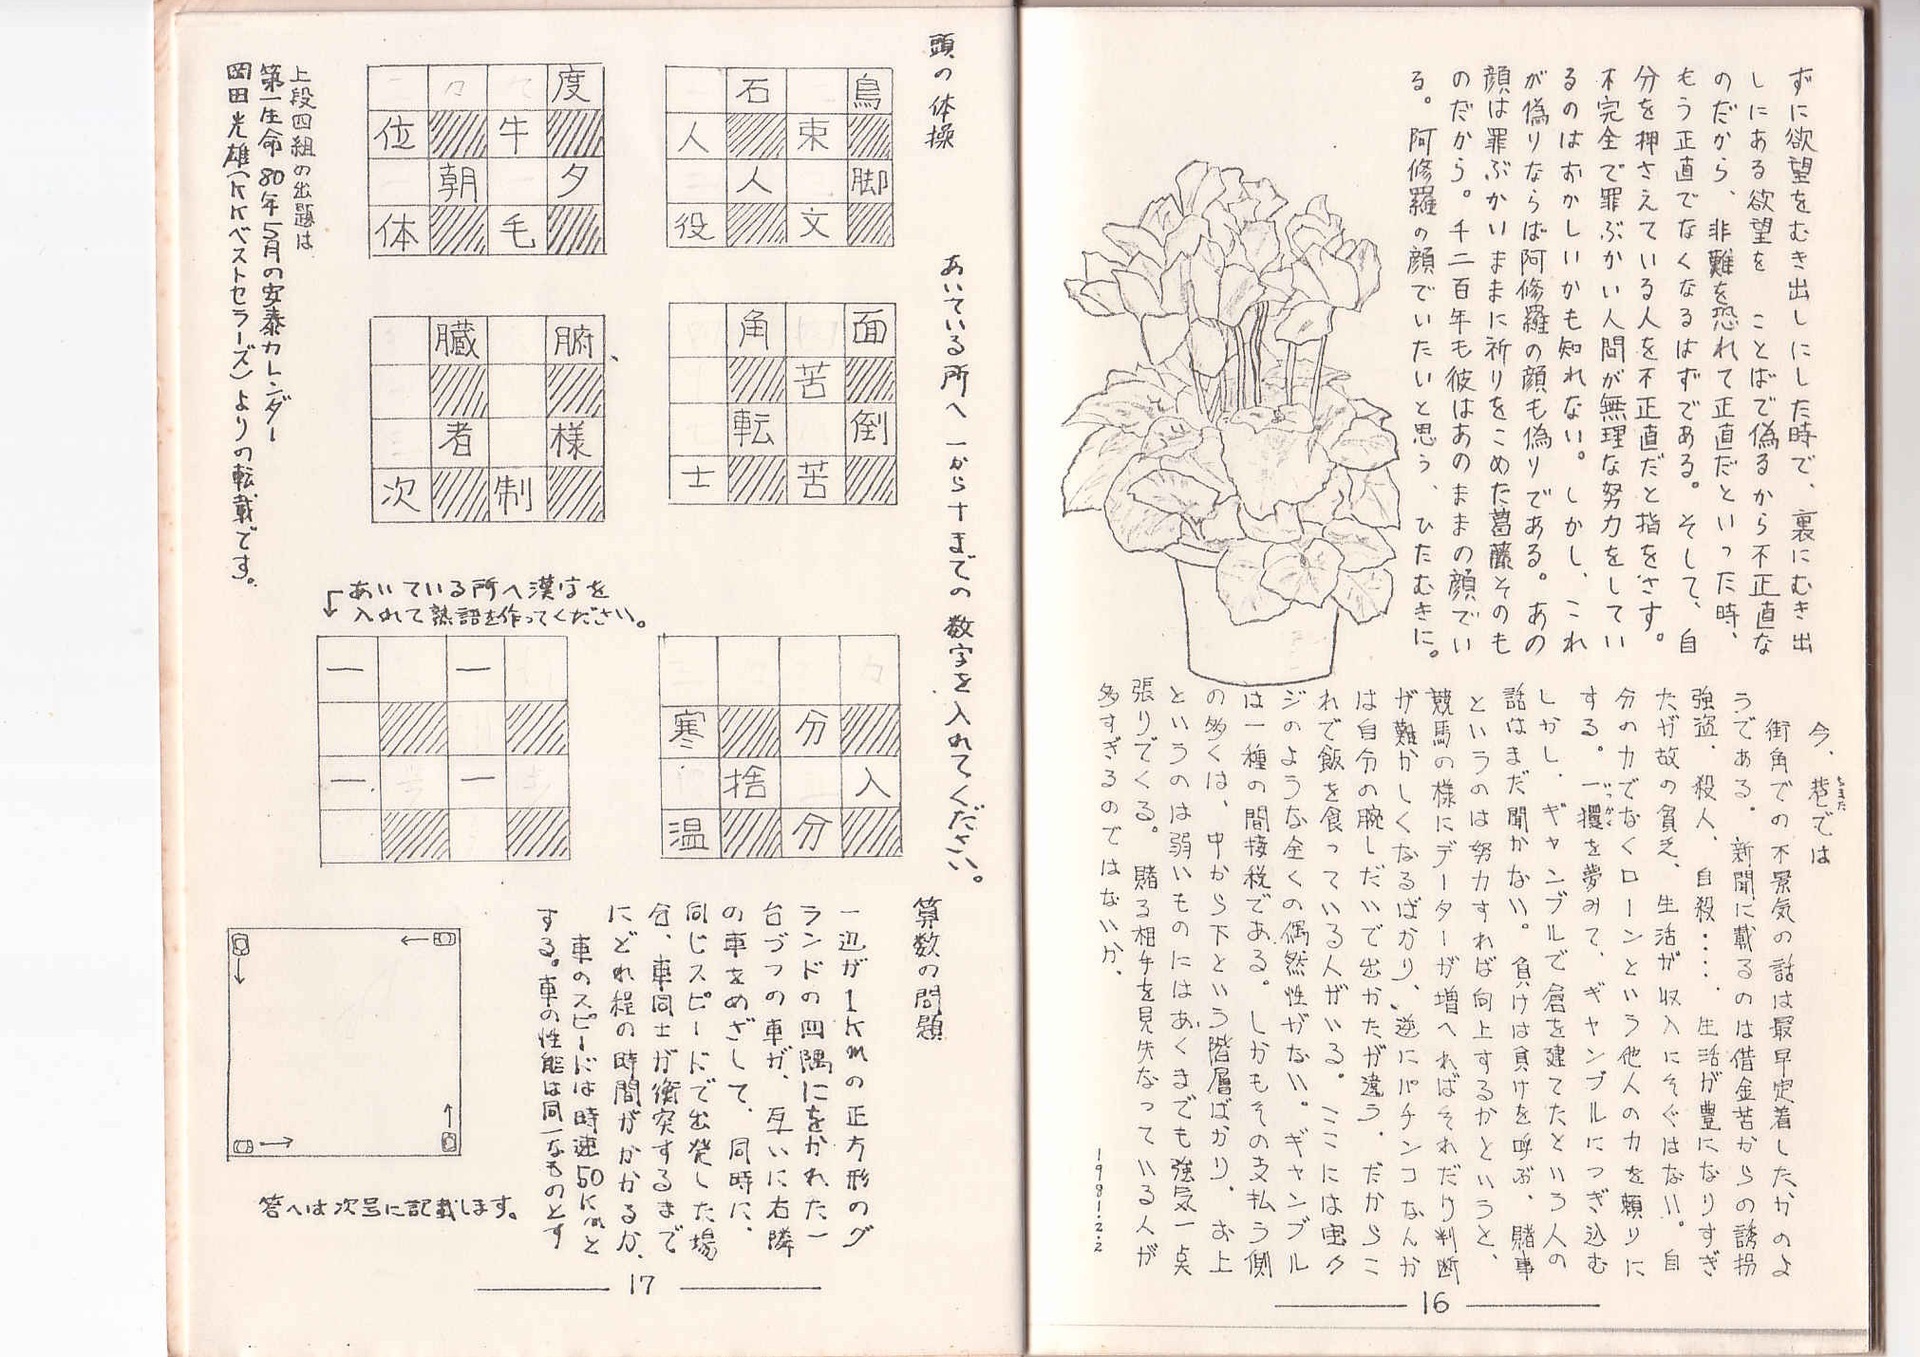 ずに欲望をむき出しにした時で、裏にむき出
しにある欲望を　ことばで偽るから不正直な
のだから、非難を恐れて正直だといった時、
もう正直でなくなるはずである。そして、自
分を押さえている人を不正直だと指をさす。
不完全で罪ぶかい人間が無理な努力をしてい
るのはおかしいかも知れない。しかし、これ
が偽りならば阿修羅の顔も偽りである。あの
顔は罪ぶかいままに祈りをこめた葛藤そのも
のだから。千二百年も彼はあのままの顔でい
る。阿修羅の顔でいたいと思う、ひたむきに。
今、巷では
ちまた
街角での不景気の話は最早定着したかのよ
うである。新聞に載るのは借金苦からの誘拐
強盗、殺人、自殺‥‥、生活が豊になりすぎ
たが故の貧乏、生活が収入にそぐはない。自
分の力でなくローンという他人の力を頼りに
する。一攫を夢みて、ギャンブルにつぎ込む
いっかく
しかし、ギャンブルで倉を建てたという人の
話はまだ聞かない。負けは負けを呼ぶ、賭事
というのは努力すれば向上するかというと、
競馬の様にデーターが増へればそれだけ判断
が難かしくなるばかり、逆にパチンコなんか
は自分の腕しだいで出かたが違う、だからこ
れで飯を食っている人がいる。ここには宝ク
ジのような全くの偶然性がない。ギャンブル
は一種の間接税である。しかもその支払う側
の多くは、中から下という階層ばかり、お上
というのは弱いものにはあくまでも強気一点
張りでくる。賭る相手を見失なっている人が
多すぎるのではないか、
1981.2.2
16
頭の体操
あいている所へ一から十までの数字を入れてください。
石　鳥
人　束
人　脚
役　文
度
位　牛
朝　夕
体　毛
角　面
苦
転　倒
士　苦
臓　腑
者　様
次　制
寒　分
捨　入
温　分
あいている所へ漢字を
入れて熟語を作ってください。
一　一
一　一
上段四組の出題は
第一生命80年5月の安泰カレンダー
岡田光雄(KKベストセラーズ)よりの転載です。
算数の問題
一辺が1Kmの正方形のグ
ランドの四隅にをかれた一
台づつの車が、互いに右隣
の車をめざして、同時に、
同じスピードで出発した場
合、車同士が衝突するまで
にどれ程の時間がかかるか、
車のスピードは時速50Kmと
する。車の性能は同一なものとす
答へは次号に記載します。
17